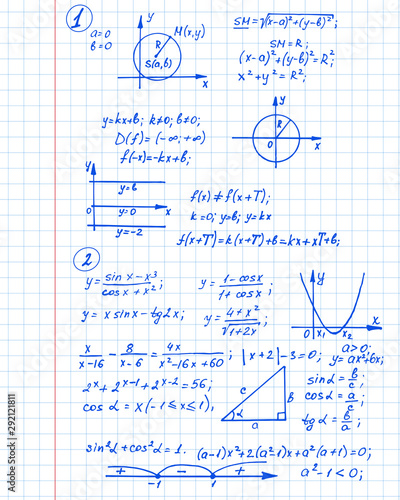 1
a=0
b=0
y
M(x,y)
R
S(a,b)
x
SM=√(x-a)²+(y-b)²;
SM=R;
(x-a)²+(y-b)²=R²;
x²+y²=R²;
y=kx+b; k≠0; b≠0;
D(f)=(-∞;+∞)
f(-x)=-kx+b;
y
R
0
x
y
y=b
0
y=0
x
y=-2
f(x)≠f(x+T);
k=0; y=b; y=kx
f(x+T)=k(x+T)+b=kx+xT+b;
2
y=(sin x-x³)/(cos x+x²);
y=(1-cosx)/(1+cosx);
y=x sinx-tg2x;
y=(4+x²)/√(1+2x);
y
0
x₁
x₂
x
a>0;
y=ax²+bx;
x/(x-16) - 8/(x-6) = 4x/(x²-16x+60); |x+2|-3=0;
2ˣ+2ˣ⁻¹+2ˣ⁻²=56;
cos α=x(-1≤x≤1),
c
b
α
a
sinα=b/c;
cosα=a/c;
tgα=b/a;
sin²α+cos²α=1. (a-1)x²+2(a²1)x+a²(a+1)=0;
+ - +
-1 1
a²-1<0;
Adobe Stock | #292121811